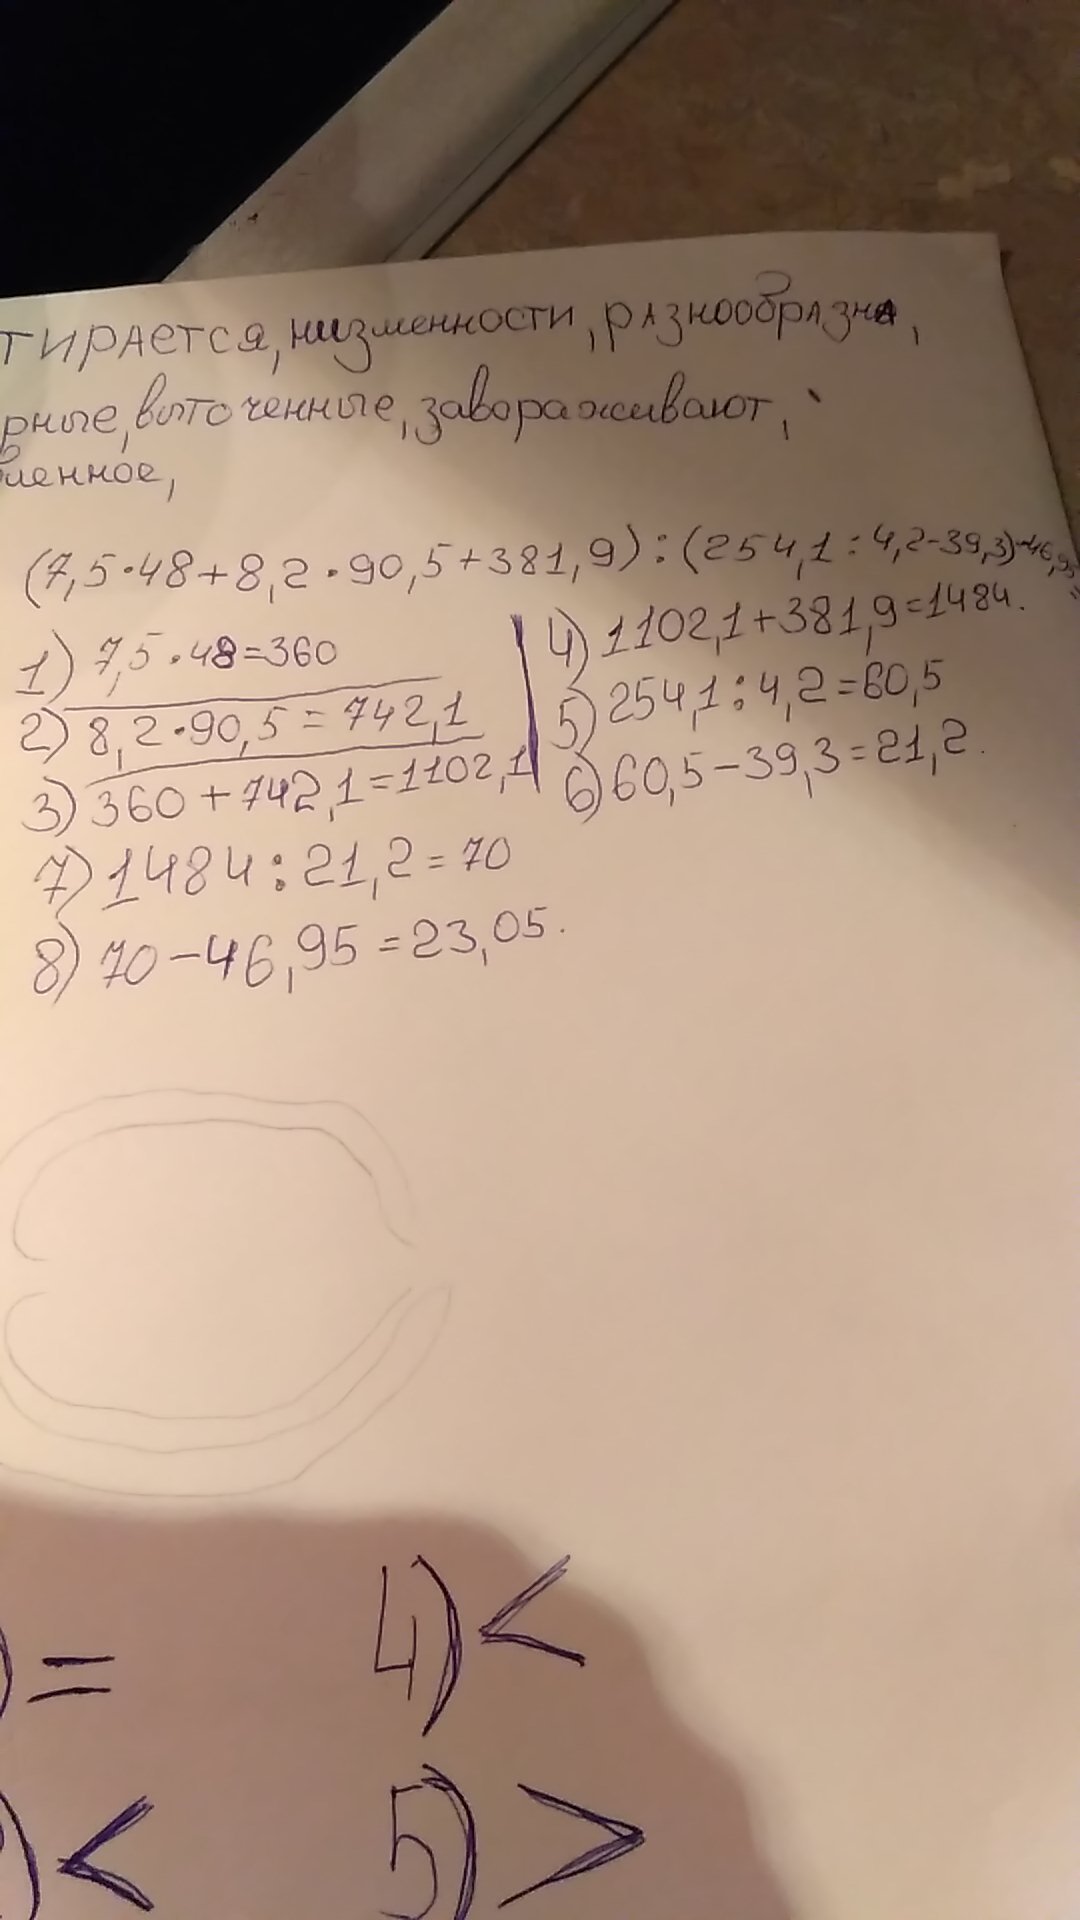 тирается, низменности, разнообразна,
рные, выточенные, завораживают,
ленное,
(7,5·48+8,2·90,5+381,9):(254,1:4,2-39,3)-46,95=
1) 7,5·48=360
2) 8,2·90,5=742,1
3) 360+742,1=1102,1
4) 1102,1+381,9=1484.
5) 254,1:4,2=60,5
6) 60,5-39,3=21,2.
7) 1484:21,2=70
8) 70-46,95=23,05.
) = 4) <
) < 5) >